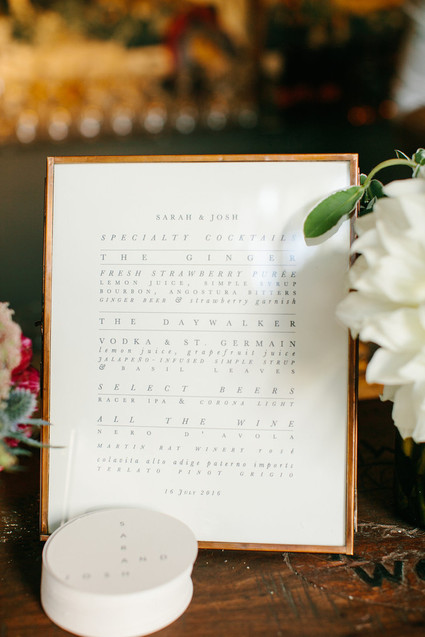 SARAH & JOSH
SPECIALTY COCKTAILS
THE GINGER
FRESH STRAWBERRY PURÉE
LEMON JUICE, SIMPLE SYRUP
BOURBON, ANGOSTURA BITTERS
GINGER BEER & strawberry garnish
THE DAYWALKER
VODKA & ST. GERMAIN
lemon juice, grapefruit juice
JALAPEÑO-INFUSED SIMPLE SYRUP
& BASIL LEAVES
SELECT BEERS
BAUER IPA & CORONA LIGHT
ALL THE WINE
NERO D'AVOLA
MARTIN RAY WINERY rosé
colavita alto adige paterno imports
TERLATO PINOT GRIGIO
16 July 2016
SARAH
AND
JOSH